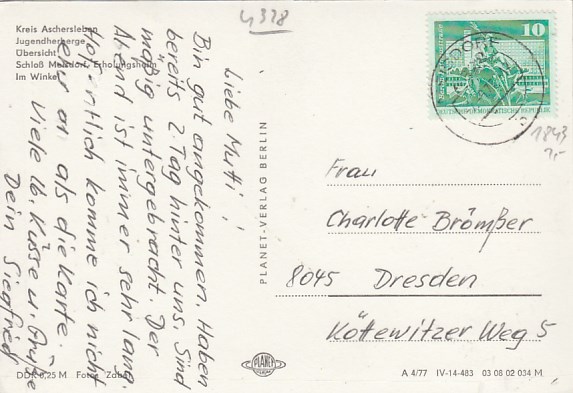 4328
Kreis Aschersleben
Jugendherberge
Übersicht
Schloß Meisdorf, Erholungsheim
Im Winkel
Liebe Mutti!
Bin gut angekommen. Haben
bereits 2. Tag hinter uns. Sind
mäßig untergebracht. Der
Abend ist immer sehr lang.
Hoffentlich komme ich nicht
eher an als die Karte.
Viele lb. Küsse u. Grüße
Dein Siegfried
DDR 0,25 M Fotos
PLANET-VERLAG BERLIN
PLANET
10
DEUTSCHE DEMOKRATISCHE REPUBLIK
1843
Frau
Charlotte Brömßer
8045 Dresden
Köttewitzer Weg 5
A 4/77 IV-14-483 03 08 02 034 M